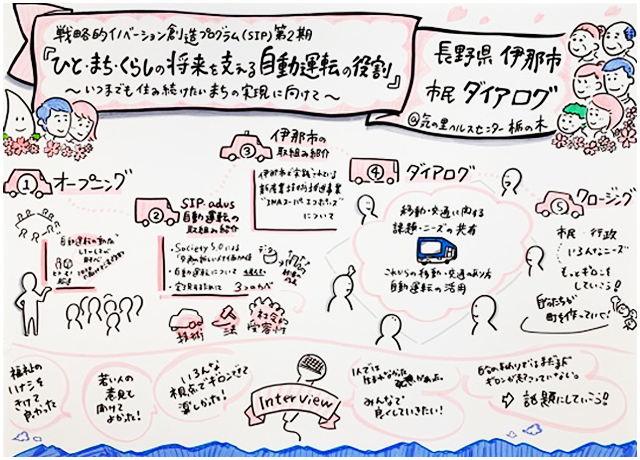 戦略的イノベーション創造プログラム(SIP)第2期
『ひと・まち・くらしの将来を支える自動運転の役割』
〜いつまでも住み続けたいまちの実現に向けて〜
長野県 伊那市
市民 ダイアログ
@気の里ヘルスセンター栃の木
① オープニング
② SIP-adus
自動運転の
取組み紹介
・Society5.0による
・自動運転について
・実現するために 3つのカベ
技術
法
社会的
受容性
③ 伊那市の
取組み紹介
伊那市で実践されている
新産業技術推進事業
について
④ ダイアログ
移動・交通に関する
課題・ニーズの共有
これからの移動・交通のあり方
自動運転の活用
⑤ クロージング
市民・行政
いろんなニーズ
もっとギロンを
していこう!
自分たちが
町を作っていく!
福祉の
ハナシを
きけて
良かった
若い人の
意見も
聞けて
よかった!
いろんな
視点でギロンできて
楽しかった!
Interview
1人では
発想があった。
みんなで
良くしていきたい!
自分のまわりではまだまだ
ギロンが起こっていない。
⇨ 話題にしていこう!!